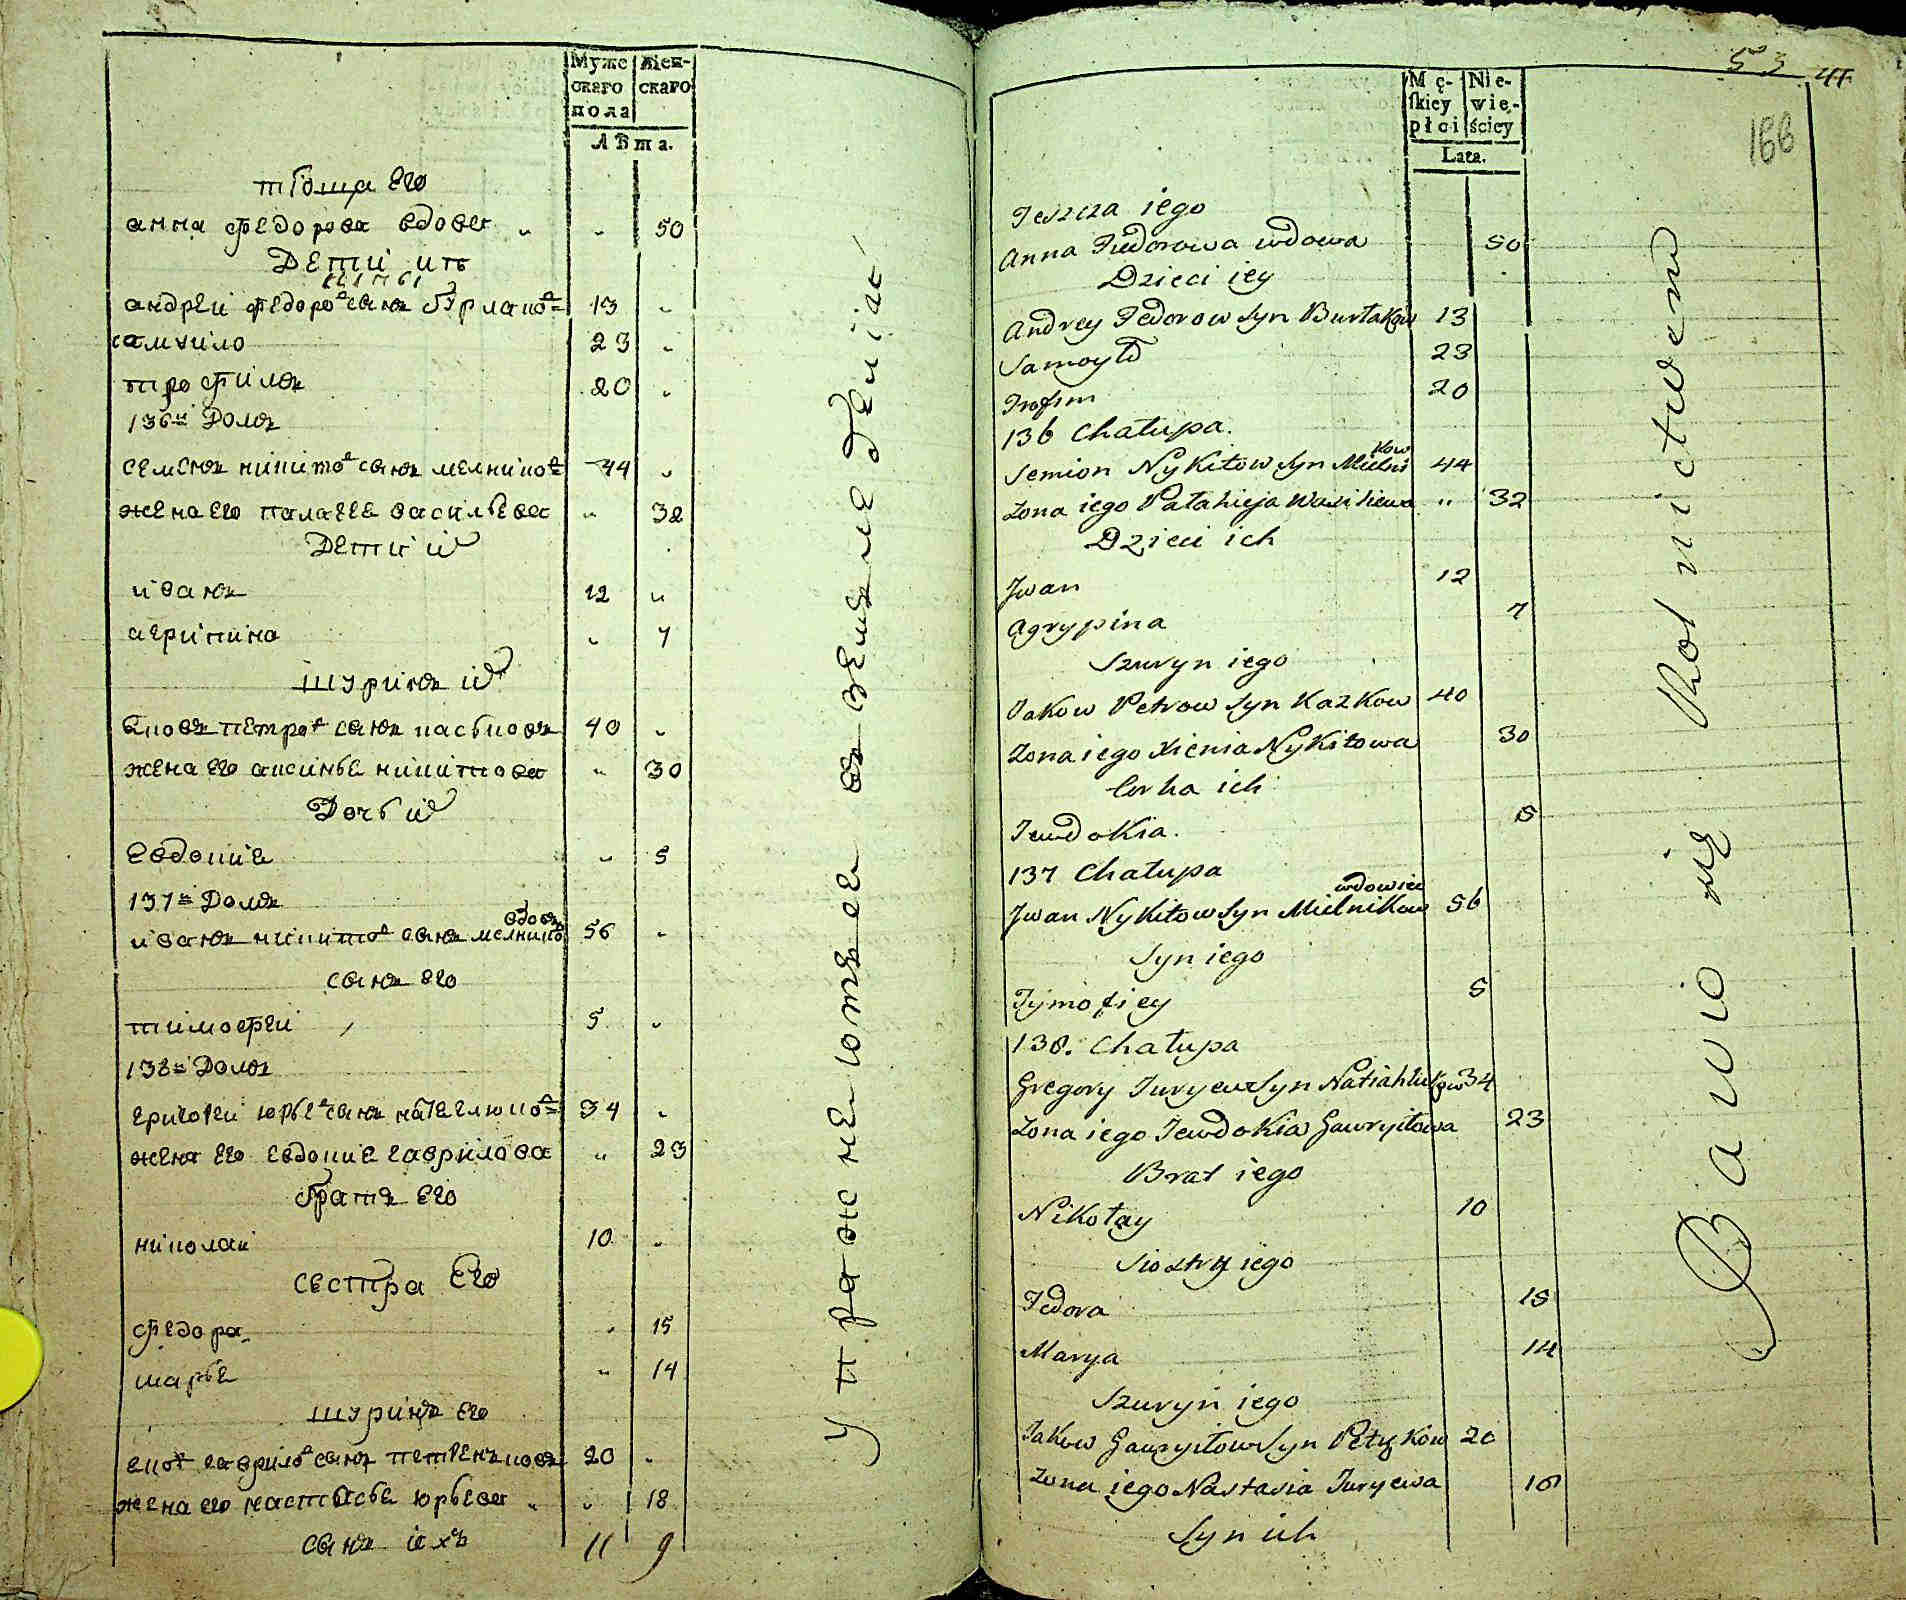 Муже
скаго
пола
Жен-
скаго
Лѣта.
тѣоща его
анна федорова вдова „ „ 50
Дети ить
андрей федоровъ сынъ бурлаковъ 13 „
самуило 23 „
трофимъ 20 „
136й Домъ
семенъ никитовъ сынъ мелниковъ 44 „
жена его палагее васильева „ 32
Дети их
иванъ 12 „
агрипина „ 7
шуринъ их
яковъ петровъ сынъ каськовъ 40 „
жена его аксинье никитова „ 30
Дочь их
евдокие „ 5
137й Домъ
вдовъ
иванъ никитовъ сынъ мелников 56 „
сынъ его
тимофей 5 „
138й Домъ
григорей юрьевъ сынъ натеглюковъ 34 „
жена его евдокие гаврилова „ 23
братъ его
николай 10 „
сестра его
федора „ 15
марье „ 14
шуринъ его
яков гаврилов сынъ петренковъ 20 „
жена его настасье юрьева „ „ 18
сынъ ихъ 11 9
упражнеютъсе въ земле делие
53 41
166
Mę-
skiey
płci
Nie-
wie-
ściey
Lata.
Teszcza iego
Anna Fiedorowa wdowa 50
Dzieci iey
Andrey Fedorow syn Burłakow 13
Samoyło 23
Trofim 20
136 Chałupa.
kow
Semion Nykitow syn Mielni 44
Zona iego Pałahieja Wasiliewa „ 32
Dzieci ich
Jwan 12
Agrypina 7
Szuryn iego
Jakow Petrow syn Kazkow 40
Zona iego Xienia Nykitowa 30
Corka ich
Jewdokia. 5
137 Chałupa
wdowiec
Jwan Nykitow syn Mielnikow 56
Syn iego
Tymofiey 5
138. Chałupa
Gregory Juryew syn Natiahlukow 34
Zona iego Jewdokia Gawryłowa 23
Brat iego
Nikołay 10
Siostry iego
Fedora 15
Marya 14
Szuryn iego
Jakow Gawryłow syn Petykow 20
Zona iego Nastasia Juryewa 18
Syn ich
Bawio się Rolnictwem